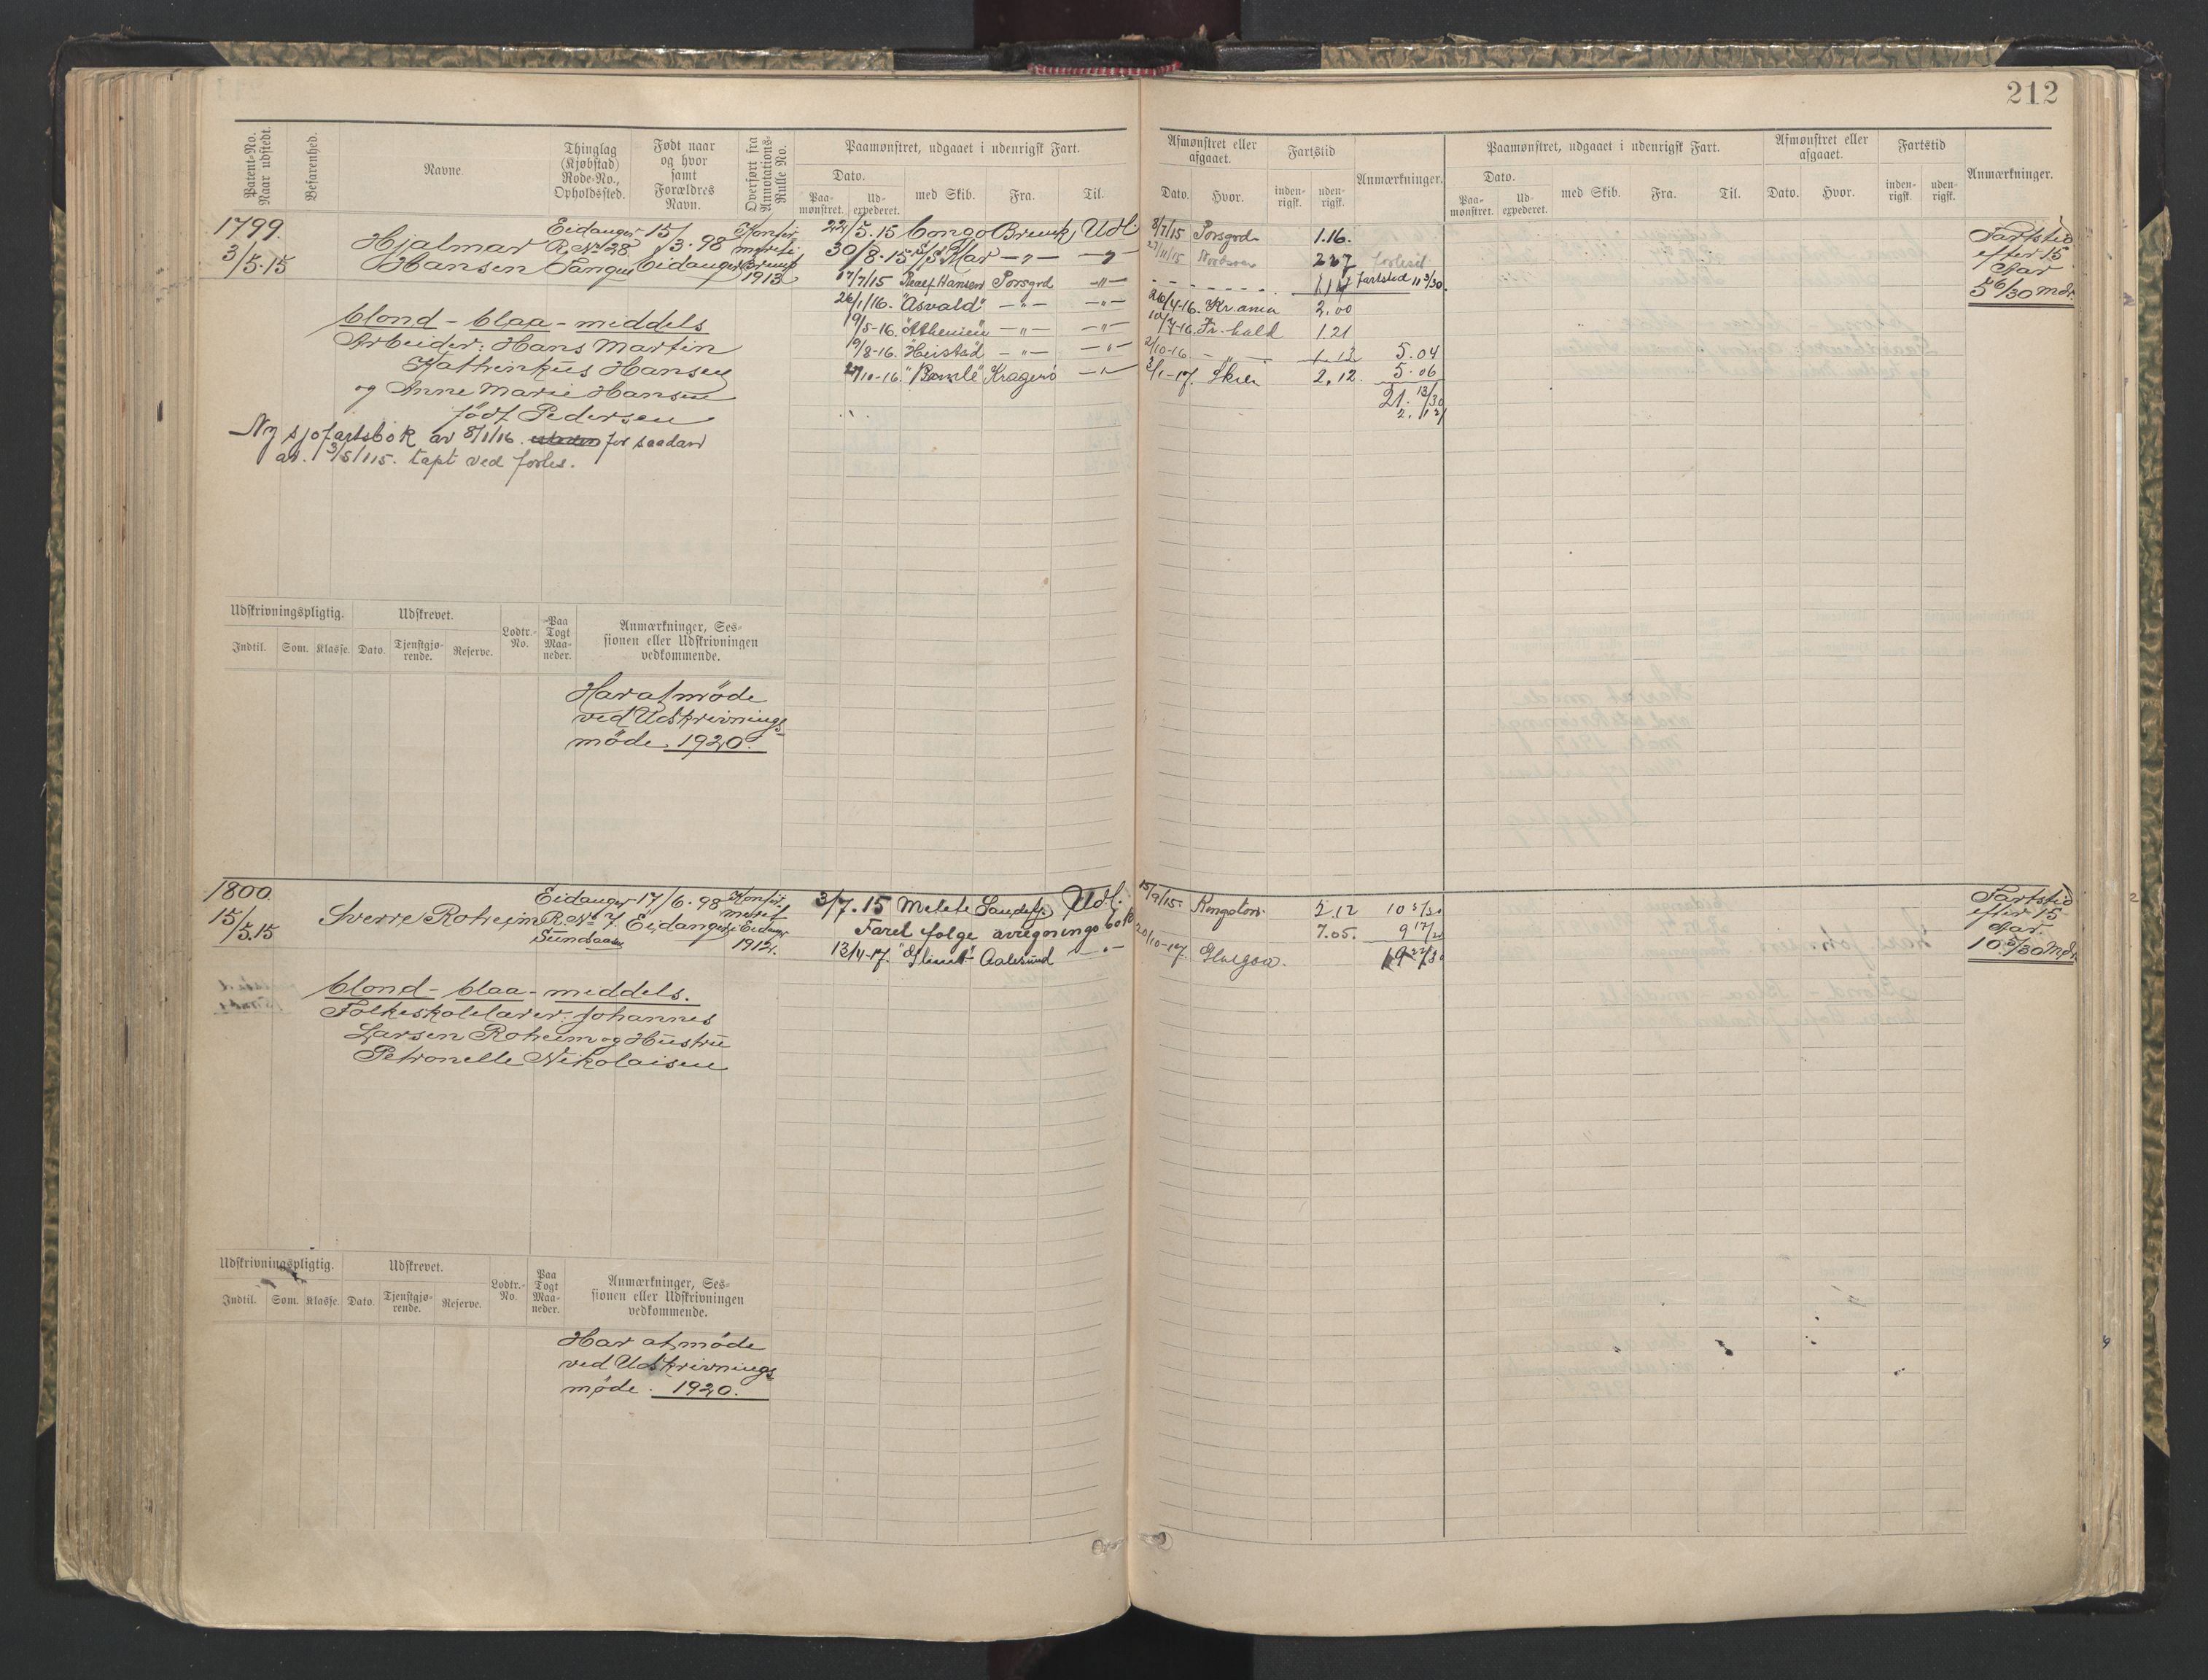 212
Patent-No. Naar udstedt.
Befarenhed.
Navne.
Thinglag (Kjøbstad) Rode-No., Opholdssted.
Født naar og hvor samt Forældres Navn.
Overført fra Annotations-Rulle No.
Paamønstret, udgaaet i udenrigsk Fart.
Dato.
Paa-mønstret.
Ud-expederet.
med Skib.
Fra.
Til.
Afmønstret eller afgaaet.
Dato.
Hvor.
Fartstid
inden-rigsk.
uden-rigsk.
Anmærkninger.
Paamønstret, udgaaet i udenrigsk Fart.
Dato.
Paa-mønstret.
Ud-expederet.
med Skib.
Fra.
Til.
Afmønstret eller afgaaet.
Dato.
Hvor.
Fartstid
inden-rigsk.
uden-rigsk.
Anmærkninger.
1799.
3/5.15
Hjalmar
Hansen
Eidanger
R. No 28
Tangen
15/3.98
Eidanger
Brevik
1913
blond - blaa - middels
Arbeider: Hans Martin
Kathinkus Hansen
og Anne Marie Hansen
født Pedersen
Ny sjøfartsbok av 8/1/16. for saadan
av. 3/5/15. tapt ved forlis.
22/5.15 Congo Brevik Udl 8/7/15 Porsgrd. 1.16.
30/8.15 S/S Mar -"- -"- 27/11/15 Nordsøen 227 forlist
17/7/15 Porsgrd -"- Fartstid 11 3/30.
26/1/16. "Asvald" -"- -"- 26/4-16. Kr.ania 2,00
19/5-16. -"- -"- 10/7-16. Fr.hald 1.21
19/8-16. "Heistad" -"- -"- 2/10-16 -"- 1.12 5.04
27/10-16. "Bamle" Kragerø -"- 2/1-17. Skien 2.12. 5.06
21. 13/30
Fartstid
efter 15
Aar
5 6/30 mdr
Udskrivningspligtig.
Indtil.
Som.
Klasse.
Udskrevet.
Dato.
Tjenstgjø-rende.
Reserve.
Lodtr.-No.
Paa Togt Maa-neder.
Anmærkninger, Ses-sionen eller Udskrivningen vedkommende.
Har at møde
ved Udskrivnings-
møde 1920.
1800.
15/5.15
Sverre Roheim
Eidanger
R. No 7
Sundsaasen
17/6.98
Eidanger
1912.
blond - blaa - middels.
Folkeskolelærer: Johannes
Larsen Roheim og Hustru
Petronelle Nikolaisen
3/7.15 Sandefj. Udl. 15/9/15. Kingston. 2.12 10 5/30
Faret følge avregningsbok 7.05. 9 17/30
13/4-17. Aalesund -"- 20/10-17. Glasgow. 19 22/30
Fartstid
efter 15
Aar.
10 5/30 Mdr
Udskrivningspligtig.
Indtil.
Som.
Klasse.
Udskrevet.
Dato.
Tjenstgjø-rende.
Reserve.
Lodtr.-No.
Paa Togt Maa-neder.
Anmærkninger, Ses-sionen eller Udskrivningen vedkommende.
Har at møde
ved Udskrivnings-
møde. 1920.